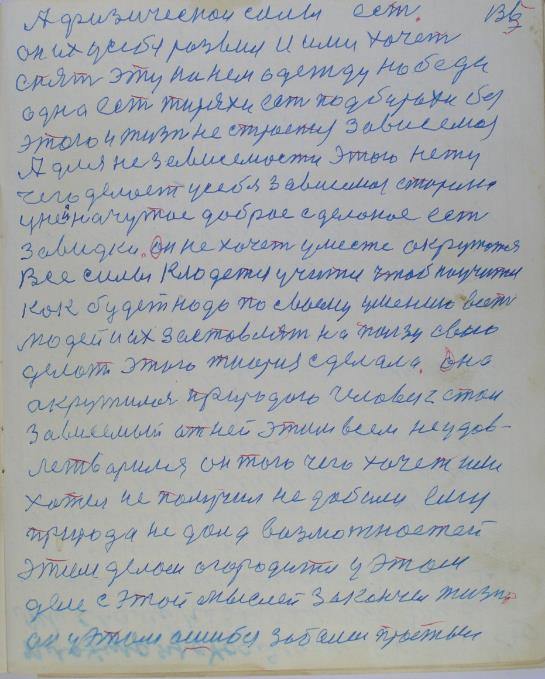 А физической силы ест.
он их у себя развил и ими хочет
снят эту на нем одежду но беда
одна ест тиряхи ест подбирахи без
этого и жизн не строется зависемая
А для не зависемости этого нету
чего делает у себя зависемая сторона
у неначутое доброе сделоное ест
завидки. Он не хочет уместе окружатся
Все силы кладет и учится чтоб научится
как будет надо по своему умению всех
людей и их заставлят на ползу свою
делат этого тиория сделала. она
акружилас природаго человек стал
зависемый от ней этим всем неудов-
летварился он того чего хочет или
хател не получил не добился ему
природа не дала возможностей
этим делом огородится у этом
деле с этой мыслей закончил жизн.
он у этом ошибся забалел простыл